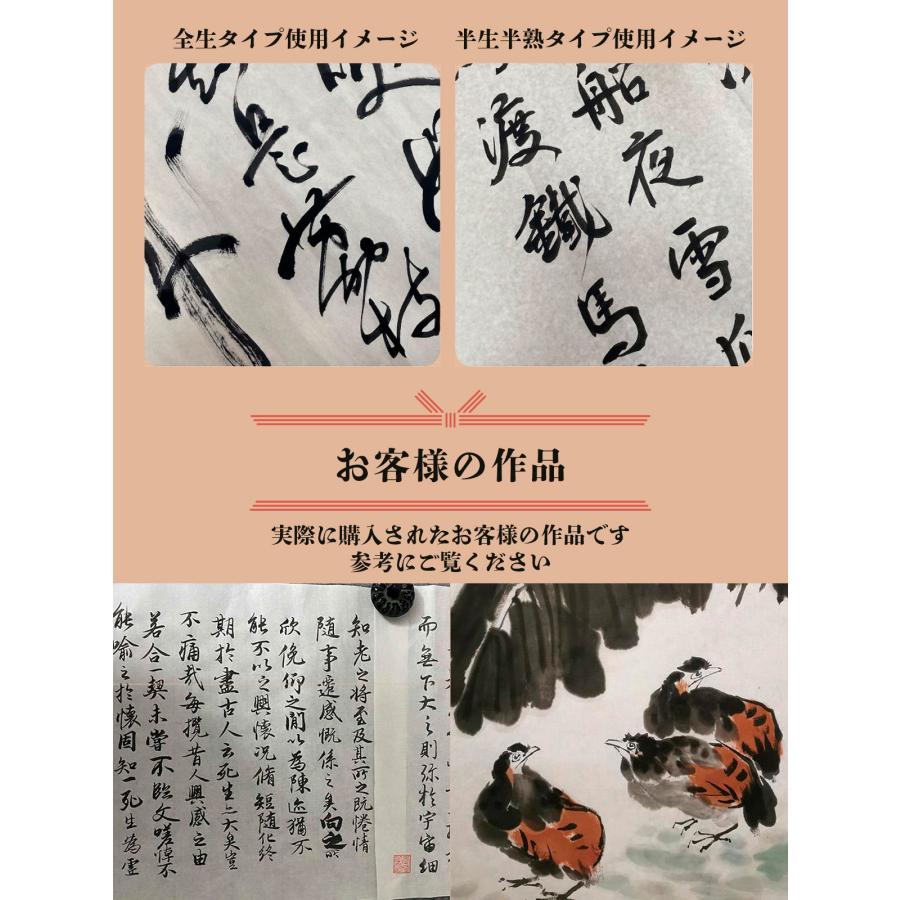 全生タイプ使用イメージ
半生半熟タイプ使用イメージ
船夜雪
渡鐵馬
お客様の作品
実際に購入されたお客様の作品です
参考にご覧ください
而無下大之則弥於宇宙細
知老之将至及其所之既惓情
随事遷感慨係之矣向之所
欣俛仰之間以為陳迹猶不
能不以之興懐况脩短随化終
期於盡古人云死生亦大矣豈
不痛哉每攬昔人興感之由
若合一契未嘗不臨文嗟悼不
能喻之於懷固知一死生為虛